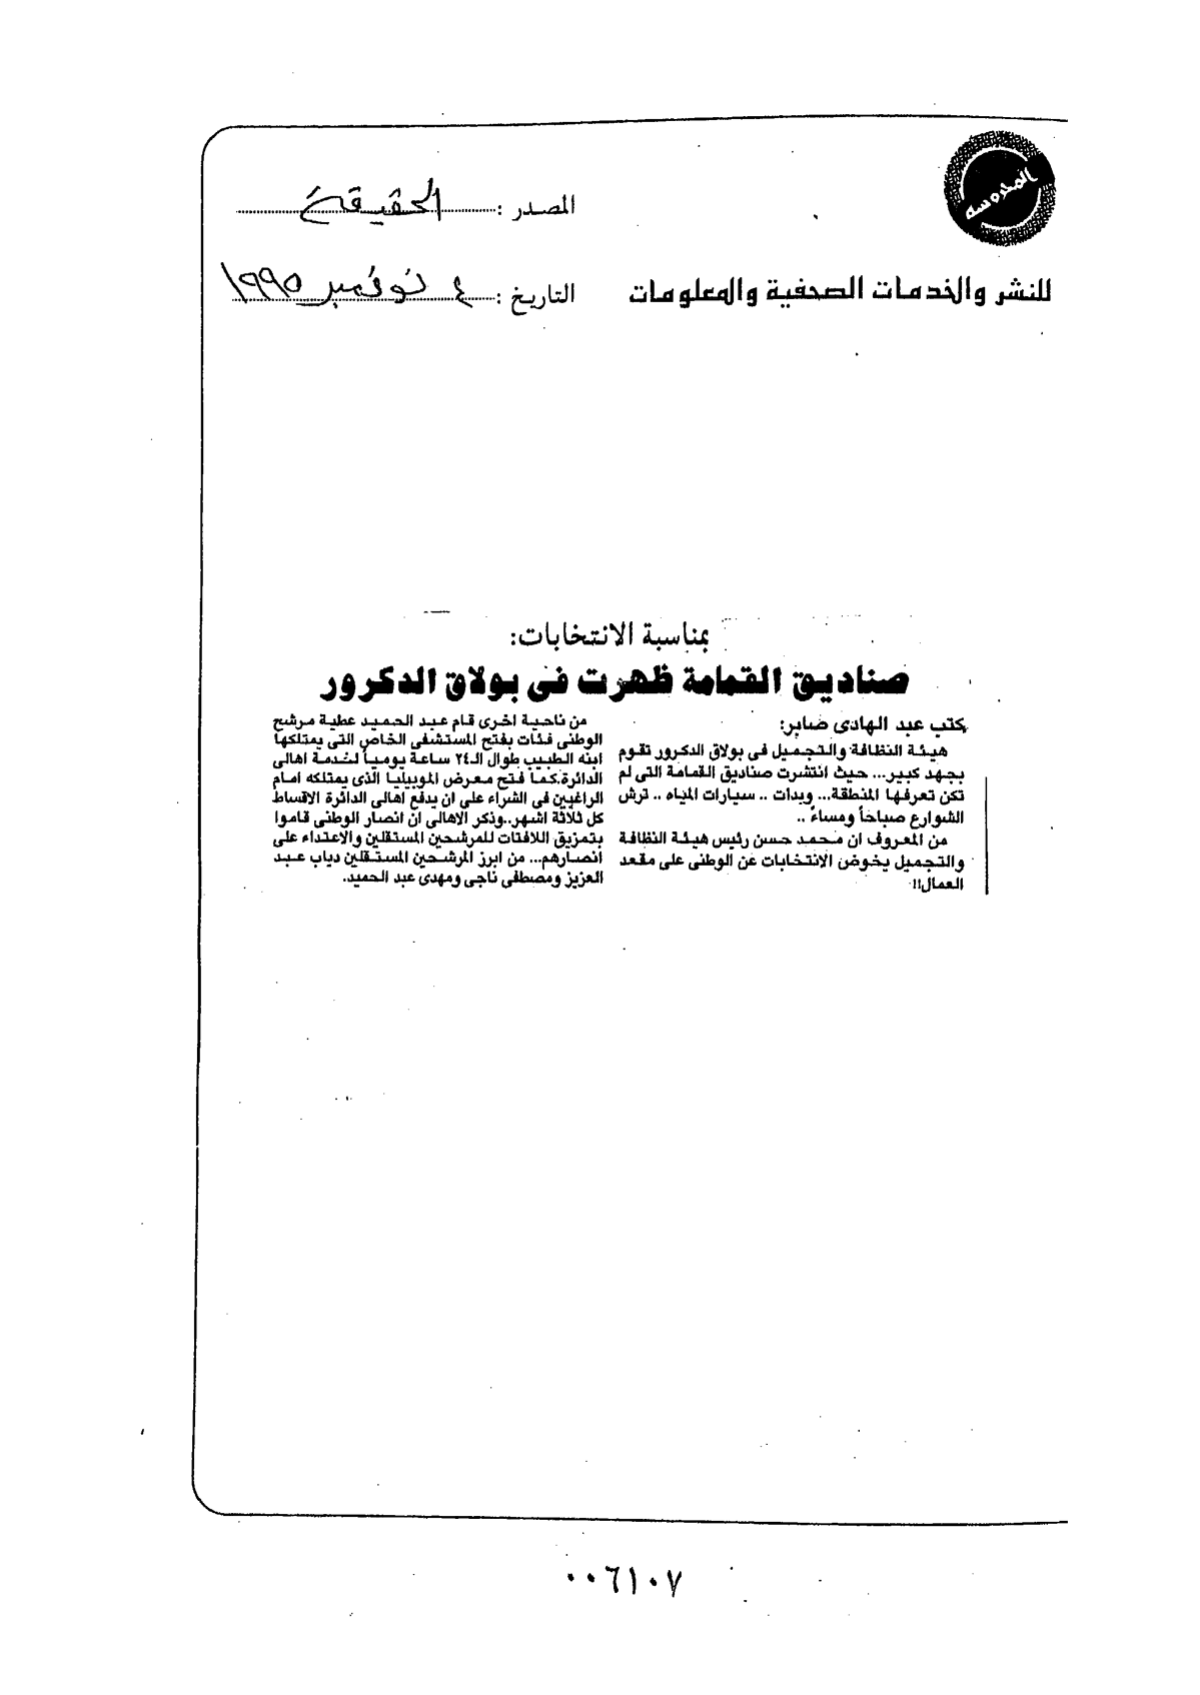 المحروسة
للنشر والخدمات الصحفية والمعلومات
المصدر : الحقيقة
التاريخ : ٤ نوفمبر ١٩٩٥
بمناسبة الانتخابات:
صناديق القمامة ظهرت فى بولاق الدكرور
كتب عبد الهادى صابر:
هيئة النظافة والتجميل فى بولاق الدكرور تقوم
بجهد كبير... حيث انتشرت صناديق القمامة التى لم
تكن تعرفها المنطقة... وبدات .. سيارات المياه .. ترش
الشوارع صباحاً ومساءً ..
من المعروف ان محمد حسن رئيس هيئة النظافة
والتجميل يخوض الانتخابات عن الوطنى على مقعد
العمال!!
من ناحية اخرى قام عبد الحميد عطية مرشح
الوطنى فئات بفتح المستشفى الخاص التى يمتلكها
ابنه الطبيب طوال الـ٢٤ ساعة يومياً لخدمة اهالى
الدائرة.كما فتح معرض الموبيليا الذى يمتلكه امام
الراغبين فى الشراء على ان يدفع اهالى الدائرة الاقساط
كل ثلاثة اشهر..وذكر الاهالى ان انصار الوطنى قاموا
بتمزيق اللافتات للمرشحين المستقلين والاعتداء على
انصارهم... من ابرز المرشحين المستقلين دياب عبد
العزيز ومصطفى ناجى ومهدى عبد الحميد.
٠٠٦١٠٧